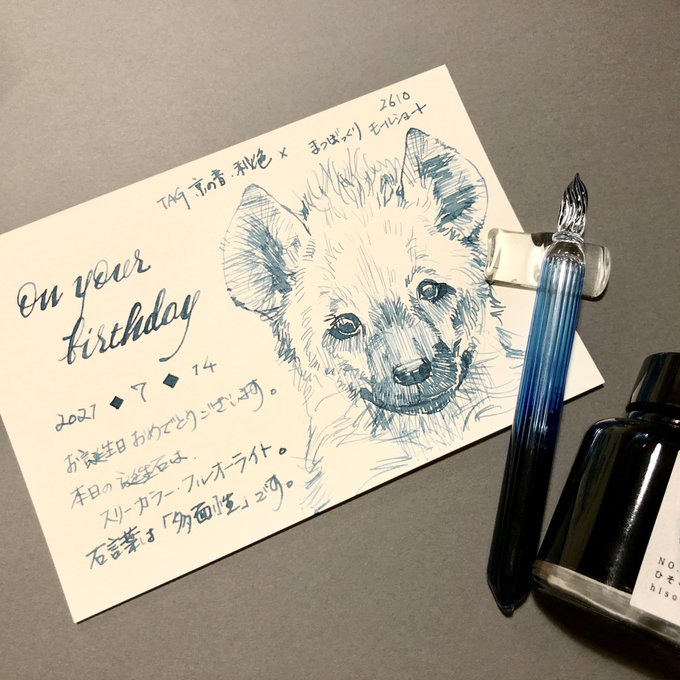 2610
TAG 京の音・秘色 × まつぼっくり モールショート
on your
birthday
2021 ◆ 7 ◆ 14
お誕生日おめでとうございます。
本日の誕生石は、
スリーカラー・フルオーライト。
石言葉は「多面性」です。
NO.
ひそ
hiso